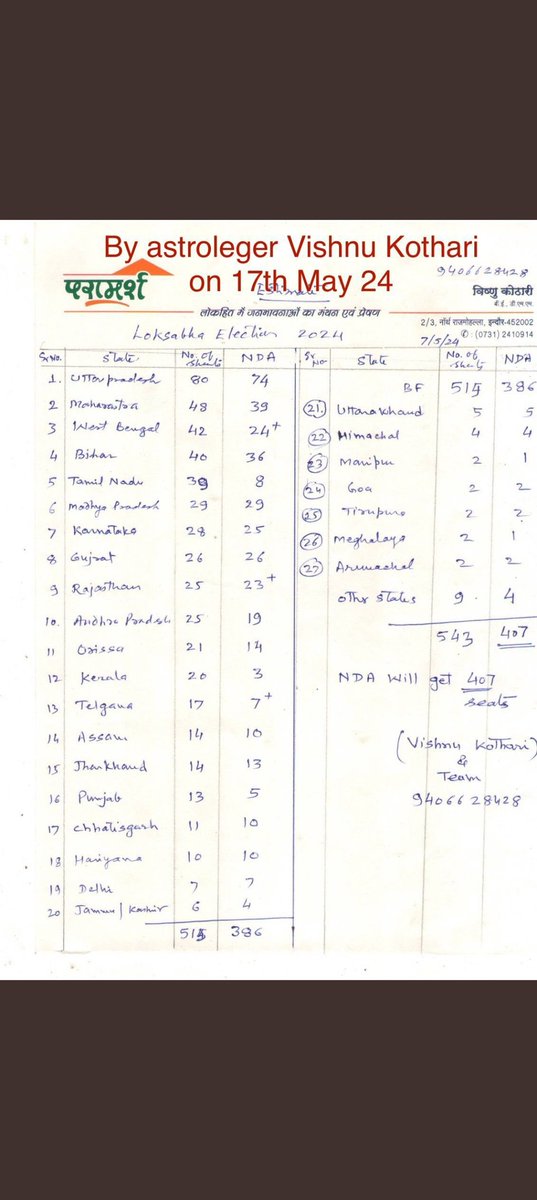 By astroleger Vishnu Kothari
on 17th May 24
9406628428
परामर्श
विष्णु कोठारी
बी.ई., डी.एम.एम.
लोकहित में जनभावनाओं का मंथन एवं प्रेषण
2/3, नॉर्थ राजमोहल्ला, इन्दौर-452002
✆ : (0731) 2410914
Loksabha Election 2024
7/5/24
Sr No. State No. of Sheats NDA
1. Uttar pradesh 80 74
2 Maharastra 48 39
3 West Bengal 42 24+
4 Bihar 40 36
5 Tamil Nadu 39 8
6 Madhya Pradesh 29 29
7 Karnataka 28 25
8 Gujrat 26 26
9 Rajasthan 25 23+
10. Andhra Pradesh 25 19
11 Orissa 21 14
12 Kerala 20 3
13 Telgana 17 7+
14 Assam 14 10
15 Jharkhand 14 13
16 Punjab 13 5
17 Chhatisgarh 11 10
18 Hariyana 10 10
19 Delhi 7 7
20 Jammu/Kashir 6 4
515 386
Sr No State No. of Sheats NDA
BF 515 386
21. Uttarakhand 5 5
22 Himachal 4 4
23 Manipur 2 1
24 Goa 2 2
25 Tirupura 2 2
26 Meghalaya 2 1
27 Arunachal 2 2
othr states 9. 4
543 407
NDA Will get 407
seats
(Vishnu Kothari)
&
Team
9406628428